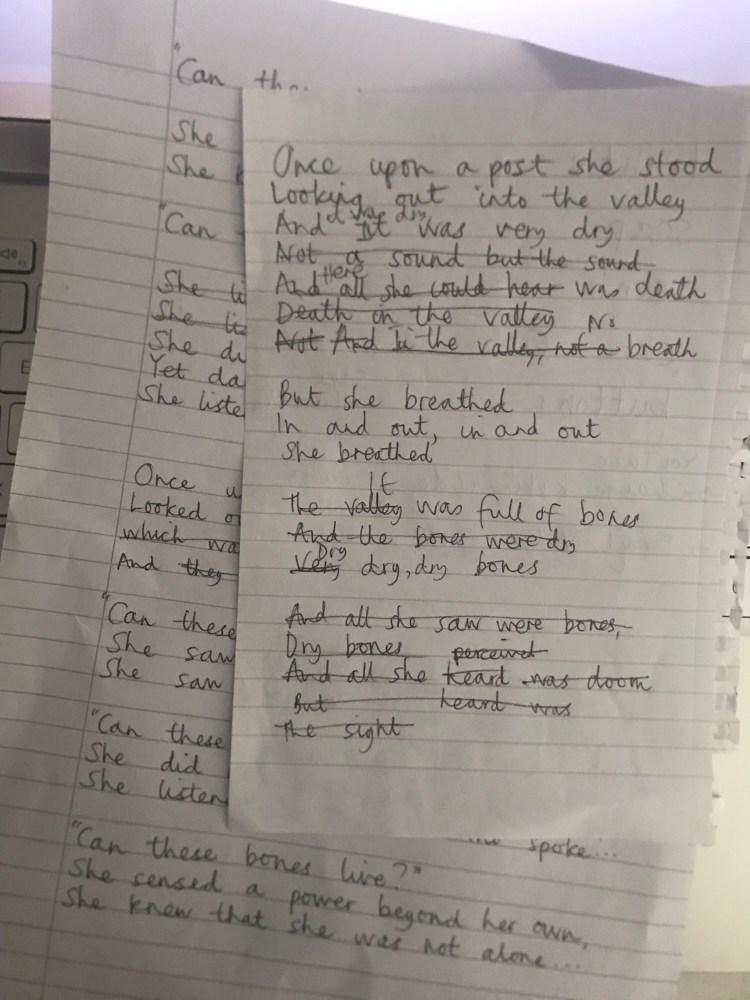 "Can th
She
She
"Can
She
She
She
Yet da
She liste
Once
Looked
which wa
And they
"Can these
She saw
She saw
"Can these
She did
She listen
spoke...
"Can these bones live?"
She sensed a power beyond her own,
She knew that she was not alone...
Once upon a post she stood
Looking out into the valley
And it was very dry
Not a sound but the sound
And Here all she could hear was death
Death in the valley No
Not And In the valley, not a breath
But she breathed
In and out, in and out
She breathed
It
The valley was full of bones
And the bones were dry
Very Dry dry, dry bones
And all she saw were bones,
Dry bones perceived
And all she heard was doom
But heard was
The sight